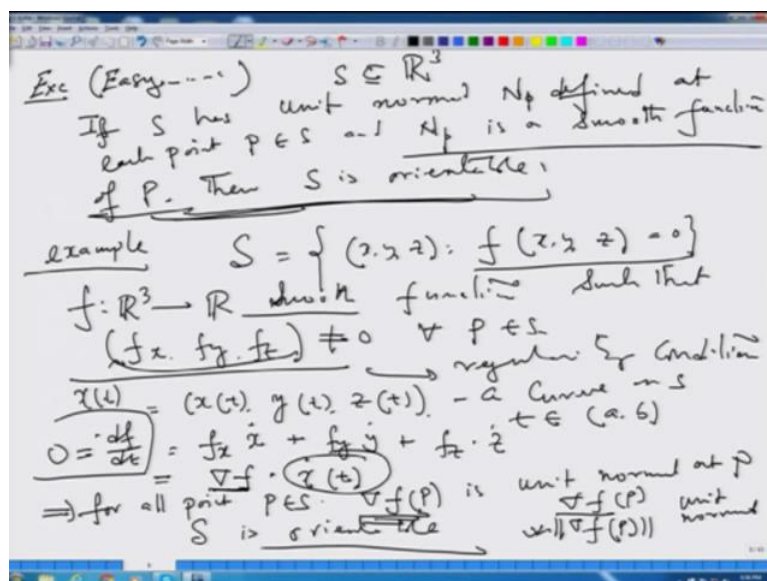 Exc (Easy-----) S ⊆ ℝ³
If S has unit normal Np defined at
each point p ∈ S and Np is a smooth function
of P. Then S is orientable.
example S = { (x, y, z) : f (x, y, z) = 0 }
f : ℝ³ → ℝ smooth function such that
(fx, fy, fz) ≠ 0 ∀ p ∈ S
→ regular condition
γ(t) = (x(t), y(t), z(t)) - a curve on S
t ∈ (a, b)
0 = df/dt = fx ẋ + fy ẏ + fz · ż
= ∇f · γ̇(t)
⇒ for all point p ∈ S. ∇f(p) is unit normal at p
S is orientable
∇f(p) / ||∇f(p)|| unit normal